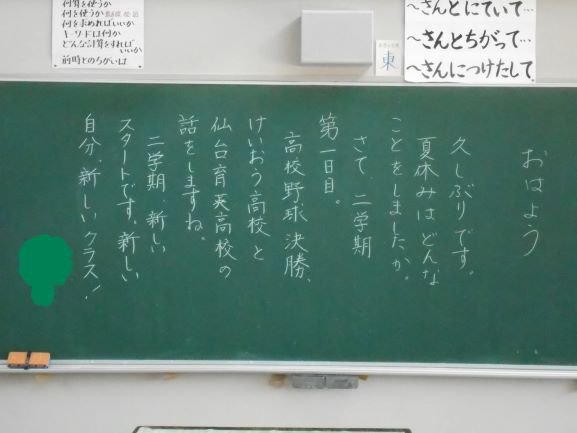 何算を使うか
何を使うか 数直線 図 図
何を求めればいいか
キーワードは何か
どんな計算をすれば
いいか
前時とのちがいは
東
〜さんとにていて…
〜さんとちがって…
〜さんにつけたして
おはよう
久しぶりです。
夏休みはどんな
ことをしましたか。
さて、二学期
第一日目。
高校野球決勝、
けいおう高校と
仙台育英高校の
話をしますね。
二学期、新しい
スタートです。新しい
自分、新しいクラス！